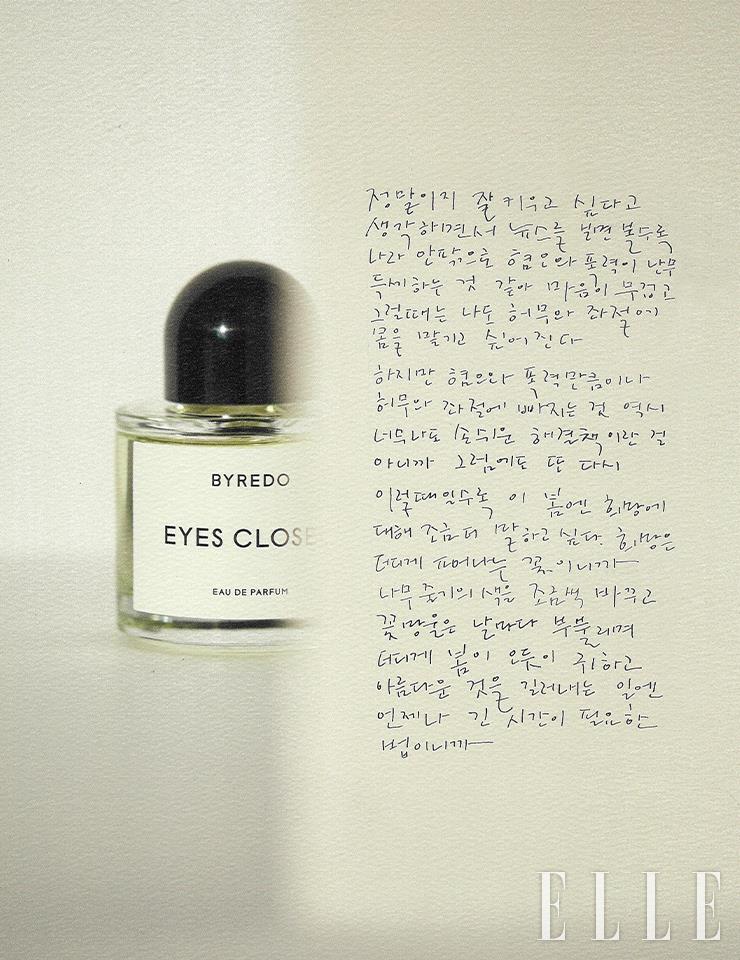 BYREDO
EYES CLOSE
EAU DE PARFUM
정말이지 잘 키우고 싶다고
생각하면서 뉴스를 보면 볼수록
나라 안팎으로 혐오와 폭력이
득세하는 것 같아 마음이 무겁고
그럴때는 나도 허무와 좌절에
몸을 맡기고 싶어진다
하지만 혐오와 폭력만큼이나
허무와 좌절에 빠지는 것 역시
너무나도 손쉬운 해결책이란 걸
아니까 그럼에도 또 다시
이럴때일수록 이 봄엔 희망에
대해 조금 더 말하고 싶다. 희망은
더디게 피어나는 꽃이니까—
나무 줄기의 색을 조금씩 바꾸고
꽃망울은 날마다 부풀리며
더디게 봄이 오듯이 귀하고
아름다운 것을 길러내는 일엔
언제나 긴 시간이 필요한
법이니까—
ELLE